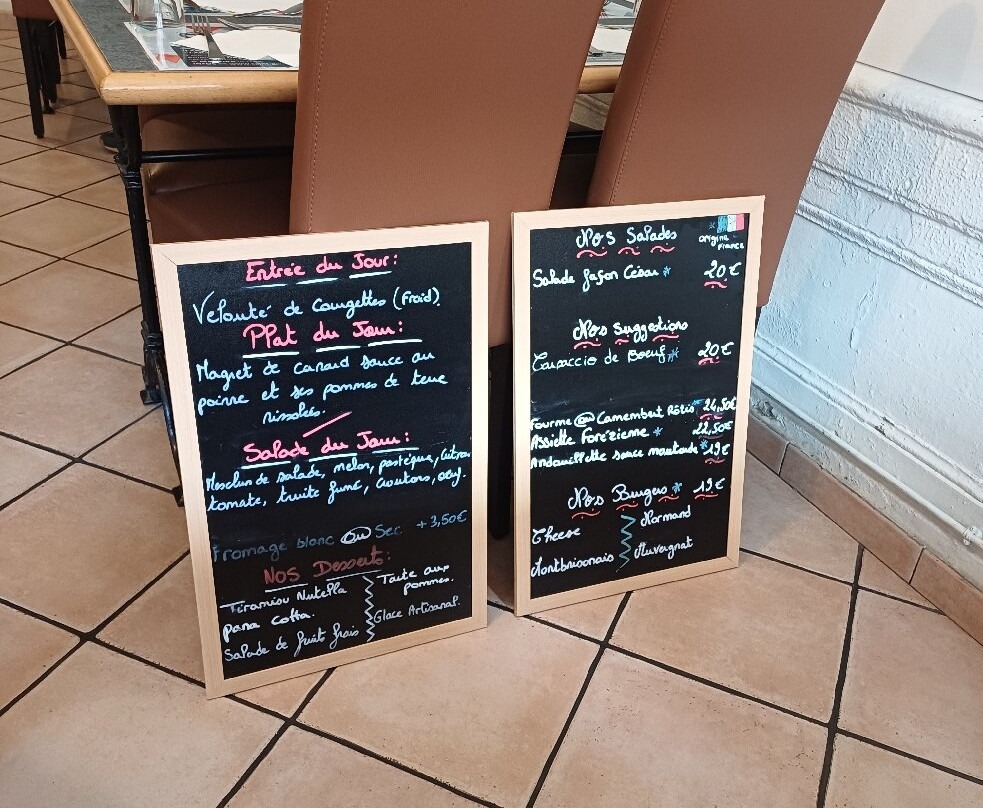 Entrée du Jour:
Velouté de Courgettes (Froid).
Plat du Jour:
Magret de canard sauce au
poivre et ses pommes de terre
rissolées.
Salade du Jour:
Mesclun de salade, melon, pastèque,
tomate, truite fumé, croutons, oeuf.
Fromage blanc ou Sec +3,50€
Nos Desserts:
Tiramisu Nutella
pana cotta.
Salade de fruits frais
Tarte aux
pommes.
Glace Artisanal.
Nos Salades
origine
France
Salade façon César * 20€
Nos Suggestions
Carpaccio de Boeuf * 20€
Fourme ou Camembert Rôtis * 24,50€
Assiette Forézienne * 22,50€
Andouillette sauce moutarde * 19€
Nos Burgers * 19€
Cheese
Montbrisonais
Normand
Auvergnat